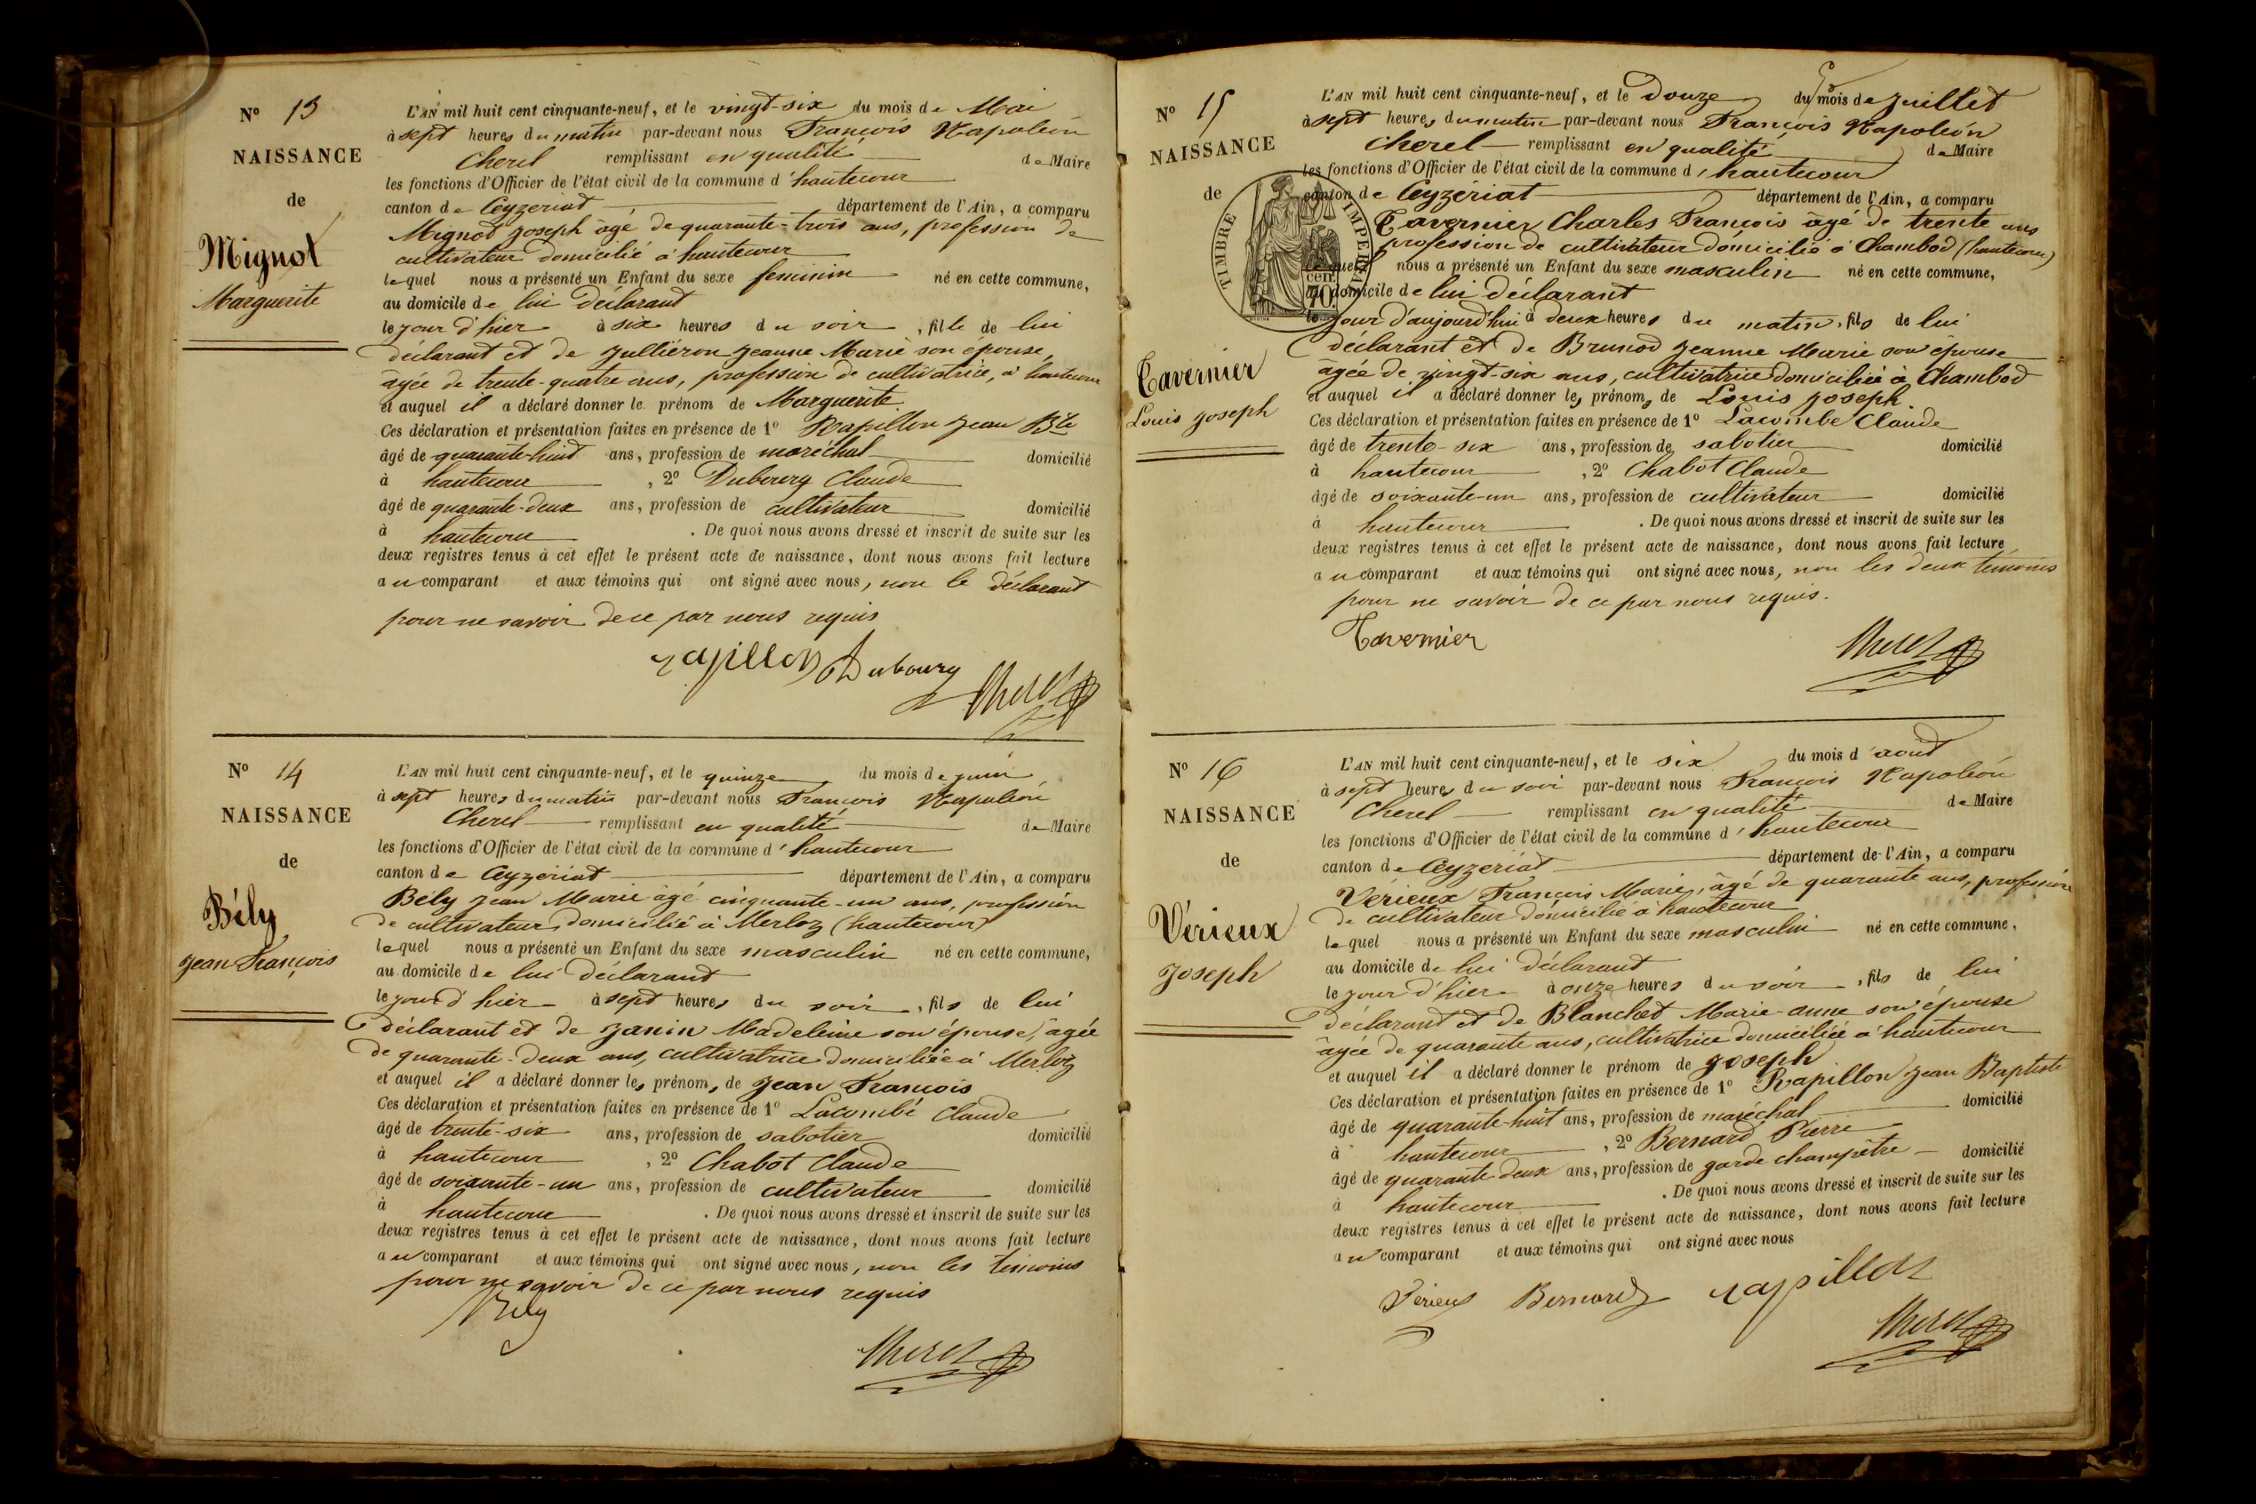 N° 13
NAISSANCE
de
Mignot
Marguerite
L'AN mil huit cent cinquante-neuf, et le vingt-six du mois de Mai
à sept heures du matin par-devant nous François Napoléon
Cherel remplissant en qualité de Maire
les fonctions d'Officier de l'état civil de la commune d'hautecour
canton de Ceyzeriat département de l'Ain, a comparu
Mignot Joseph âgé de quarante-trois ans, profession de
cultivateur domicilié à hautecour
lequel nous a présenté un Enfant du sexe feminin né en cette commune,
au domicile de lui déclarant
le jour d'hier à six heures du soir, fille de lui
déclarant et de Julliéron Jeanne Marie son épouse,
âgée de trente-quatre ans, profession de cultivatrice, à hautecour
et auquel il a déclaré donner le prénom de Marguerite
Ces déclaration et présentation faites en présence de 1° Rapillon Jean Bte
âgé de quarante-huit ans, profession de maréchal domicilié
à hautecour, 2° Dubourg Claude
âgé de quarante-deux ans, profession de cultivateur domicilié
à hautecour. De quoi nous avons dressé et inscrit de suite sur les
deux registres tenus à cet effet le présent acte de naissance, dont nous avons fait lecture
au comparant et aux témoins qui ont signé avec nous, non le déclarant
pour ne savoir de ce par nous requis
rapillon Dubourg Cherel
N° 14
NAISSANCE
de
Bély
Jean François
L'AN mil huit cent cinquante-neuf, et le quinze du mois de juin
à sept heures du matin par-devant nous François Napoléon
Cherel remplissant en qualité de Maire
les fonctions d'Officier de l'état civil de la commune d'hautecour
canton de Ceyzeriat département de l'Ain, a comparu
Bély Jean Marie âgé cinquante-un ans, profession
de cultivateur domicilié à Merloz (hautecour)
lequel nous a présenté un Enfant du sexe masculin né en cette commune,
au domicile de lui déclarant
le jour d'hier à sept heures du soir, fils de lui
déclarant et de Janin Madeleine son épouse, âgée
de quarante-deux ans, cultivatrice domiciliée à Merloz
et auquel il a déclaré donner les prénoms de Jean François
Ces déclaration et présentation faites en présence de 1° Lacombe Claude
âgé de trente-six ans, profession de sabotier domicilié
à hautecour, 2° Chabot Claude
âgé de soixante-un ans, profession de cultivateur domicilié
à hautecour. De quoi nous avons dressé et inscrit de suite sur les
deux registres tenus à cet effet le présent acte de naissance, dont nous avons fait lecture
au comparant et aux témoins qui ont signé avec nous, non les temoins
pour ne savoir de ce par nous requis
Bely
Cherel
N° 15
NAISSANCE
de
Tavernier
Louis Joseph
TIMBRE IMPERIAL
70 cen
L'AN mil huit cent cinquante-neuf, et le Douze du mois de Juillet
à sept heures du matin par-devant nous François Napoléon
Cherel remplissant en qualité de Maire
les fonctions d'Officier de l'état civil de la commune d'hautecour
canton de Ceyzériat département de l'Ain, a comparu
Tavernier Charles François âgé de trente ans
profession de cultivateur domicilié à Chambod (hautecour)
lequel nous a présenté un Enfant du sexe masculin né en cette commune,
au domicile de lui déclarant
le jour d'aujourd'hui à deux heures du matin, fils de lui
déclarant et de Brunod Jeanne Marie son épouse
âgée de vingt-six ans, cultivatrice domiciliée à Chambod
et auquel il a déclaré donner les prénoms de Louis Joseph
Ces déclaration et présentation faites en présence de 1° Lacombe Claude
âgé de trente-six ans, profession de sabotier domicilié
à hautecour, 2° Chabot Claude
âgé de soixante-un ans, profession de cultivateur domicilié
à hautecour. De quoi nous avons dressé et inscrit de suite sur les
deux registres tenus à cet effet le présent acte de naissance, dont nous avons fait lecture
au comparant et aux témoins qui ont signé avec nous, non les deux témoins
pour ne savoir de ce par nous requis.
Tavernier
Cherel
N° 16
NAISSANCE
de
Vérieux
Joseph
L'AN mil huit cent cinquante-neuf, et le six du mois d'aout
à sept heures du soir par-devant nous François Napoléon
Cherel remplissant en qualité de Maire
les fonctions d'Officier de l'état civil de la commune d'hautecour
canton de Ceyzeriat département de l'Ain, a comparu
Vérieux François Marie, âgé de quarante ans, profession
de cultivateur domicilié à hautecour
lequel nous a présenté un Enfant du sexe masculin né en cette commune,
au domicile de lui déclarant
le jour d'hier à onze heures du soir, fils de lui
déclarant et de Blanchet Marie-anne son épouse
âgée de quarante ans, cultivatrice domiciliée à hautecour
et auquel il a déclaré donner le prénom de Joseph
Ces déclaration et présentation faites en présence de 1° Rapillon Jean Baptiste
âgé de quarante-huit ans, profession de maréchal domicilié
à hautecour, 2° Bernard Pierre
âgé de quarante-deux ans, profession de garde champêtre domicilié
à hautecour. De quoi nous avons dressé et inscrit de suite sur les
deux registres tenus à cet effet le présent acte de naissance, dont nous avons fait lecture
au comparant et aux témoins qui ont signé avec nous
Vérieux Bernard rapillon
Cherel